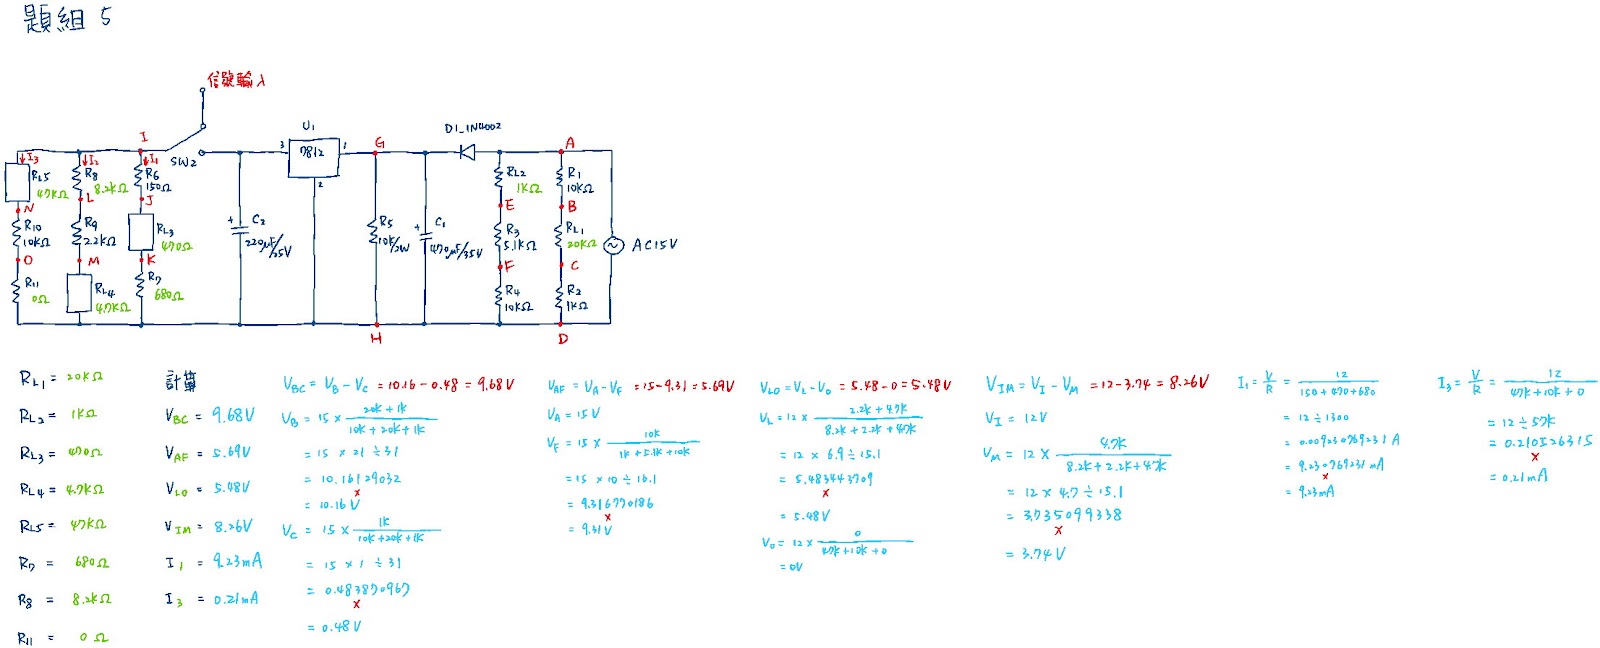 題組 5
信號輸入
I
SW2
U1
3
7812
1
2
G
D1_1N4002
A
I3
RL5
47KΩ
N
R10
10KΩ
O
R11
0Ω
I2
R8
8.2KΩ
L
R9
2.2KΩ
M
RL4
4.7KΩ
I1
R6
150Ω
J
RL3
470Ω
K
R7
680Ω
+
C2
220μF/25V
R5
10K/2W
+
C1
470μF/35V
RL2
1KΩ
E
R3
5.1KΩ
F
R4
10KΩ
R1
10KΩ
B
RL1
20KΩ
C
R2
1KΩ
AC15V
H
D
RL1 = 20KΩ
RL2 = 1KΩ
RL3 = 470Ω
RL4 = 4.7KΩ
RL5 = 47KΩ
R7 = 680Ω
R8 = 8.2KΩ
R11 = 0Ω
計算
VBC = 9.68V
VAF = 5.69V
VLO = 5.48V
VIM = 8.26V
I1 = 9.23mA
I3 = 0.21mA
VBC = VB - VC = 10.16 - 0.48 = 9.68V
VB = 15 × (20K+1K)/(10K+20K+1K)
= 15 × 21 ÷ 31
= 10.16129032
×
= 10.16V
VC = 15 × 1K/(10K+20K+1K)
= 15 × 1 ÷ 31
= 0.483870967
×
= 0.48V
VAF = VA - VF = 15 - 9.31 = 5.69V
VA = 15V
VF = 15 × 10K/(1K+5.1K+10K)
= 15 × 10 ÷ 16.1
= 9.316770186
×
= 9.31V
VLO = VL - VO = 5.48 - 0 = 5.48V
VL = 12 × (2.2K+4.7K)/(8.2K+2.2K+4.7K)
= 12 × 6.9 ÷ 15.1
= 5.483443709
×
= 5.48V
VO = 12 × 0/(47K+10K+0)
= 0V
VIM = VI - VM = 12 - 3.74 = 8.26V
VI = 12V
VM = 12 × 4.7K/(8.2K+2.2K+4.7K)
= 12 × 4.7 ÷ 15.1
= 3.735099338
×
= 3.74V
I1 = V/R = 12/(150+470+680)
= 12 ÷ 1300
= 0.009230769231 A
= 9.230769231 mA
×
= 9.23mA
I3 = V/R = 12/(47K+10K+0)
= 12 ÷ 57K
= 0.210526315
×
= 0.21mA